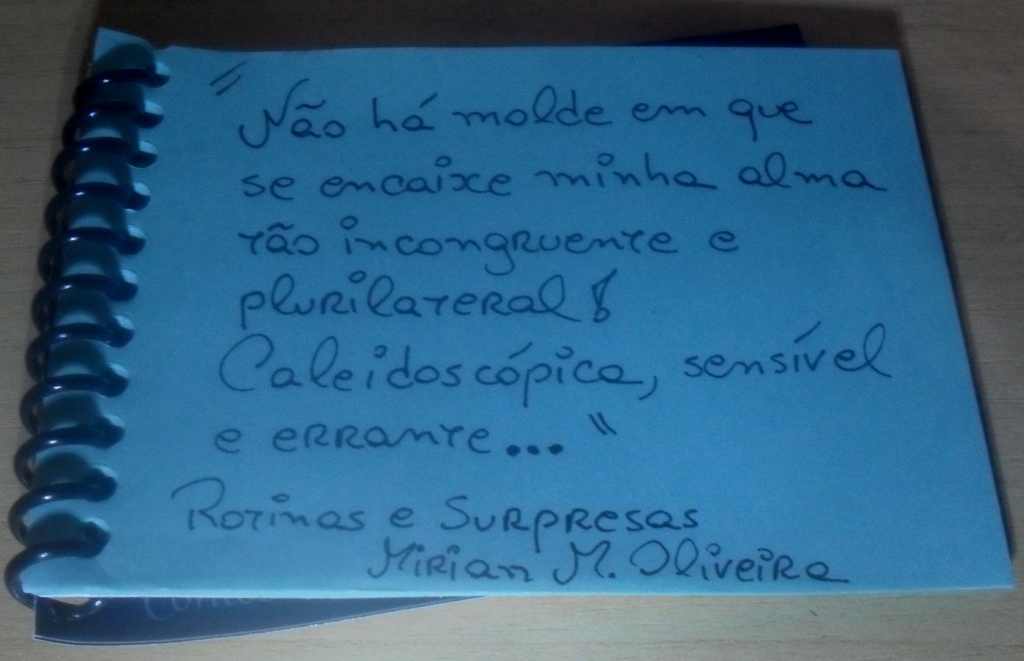 "Não há molde em que
se encaixe minha alma
tão incongruente e
plurilateral!
Caleidoscópica, sensível
e errante..."
Rotinas e Surpresas
Mirian M. Oliveira